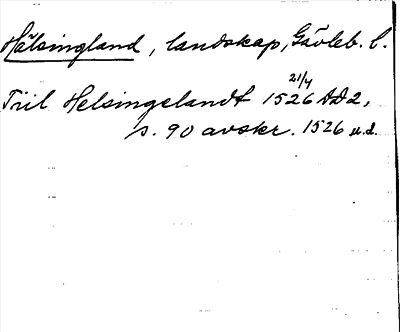 Hälsingland, landskap, Gävleb. l.
Tiil Helsingelandt 1526 21/4 ÄD2,
s. 90 avskr. 1526 u.d.